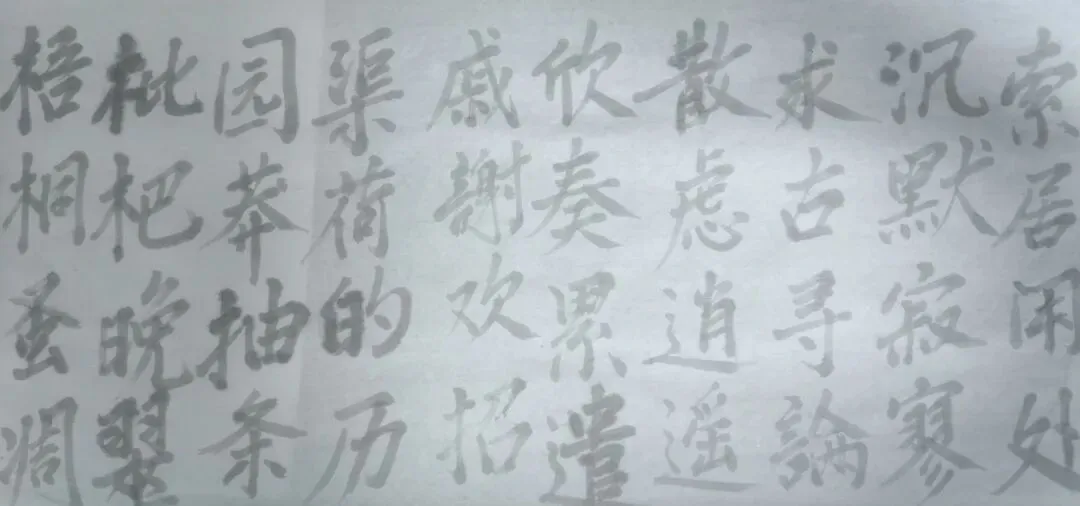 索居闲处
沉默寂寥
求古寻論
散虑逍遥
欣奏累遣
戚謝欢招
渠荷的历
园莽抽条
枇杷晚翠
梧桐蚤凋